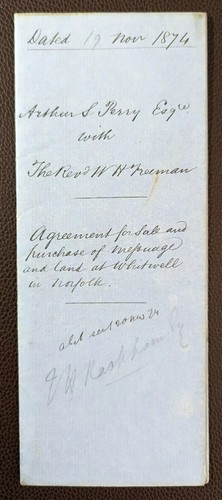 Dated 19 Nov 1874
Arthur S Perry Esqre
with
The Revd W H Freeman
Agreement for Sale and
purchase of Messuage
and land at Whitwell
in Norfolk.